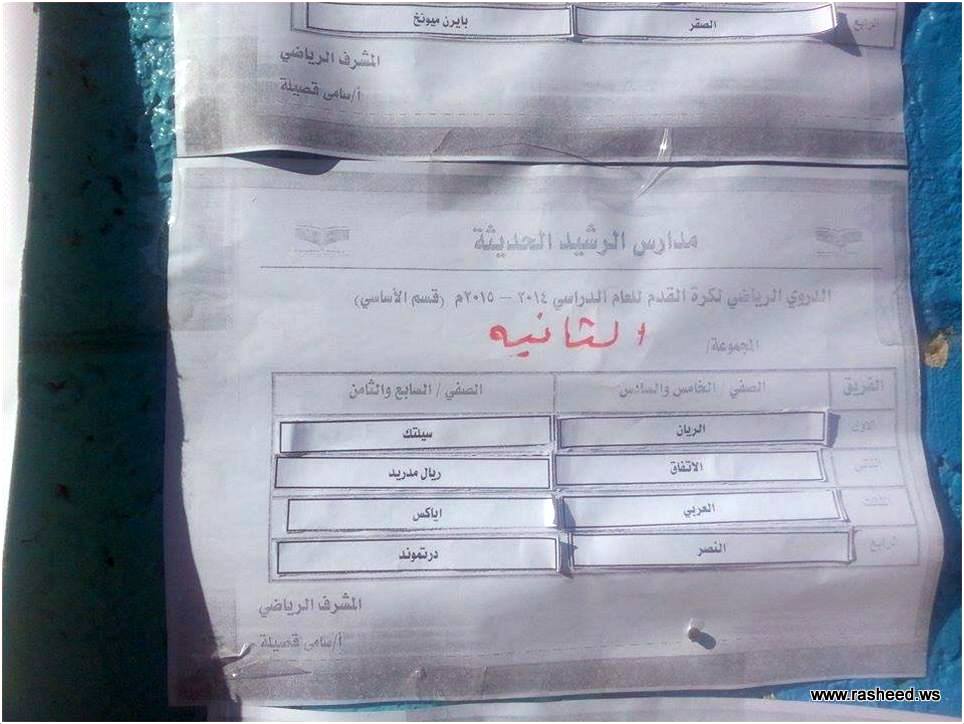 الرابع الصقر بايرن ميونخ
المشرف الرياضي
أ/سامى قصيلة
مدارس الرشيد الحديثة
الدروي الرياضي لكرة القدم للعام الدراسي ٢٠١٤ - ٢٠١٥م (قسم الأساسي)
المجموعة/ الثانيه
الفريق الصفي / الخامس والسادس الصفي / السابع والثامن
الاول الريان سيلتك
الثاني الاتفاق ريال مدريد
الثالث العربي اياكس
الرابع النصر درتموند
المشرف الرياضي
أ/سامى قصيلة
www.rasheed.ws